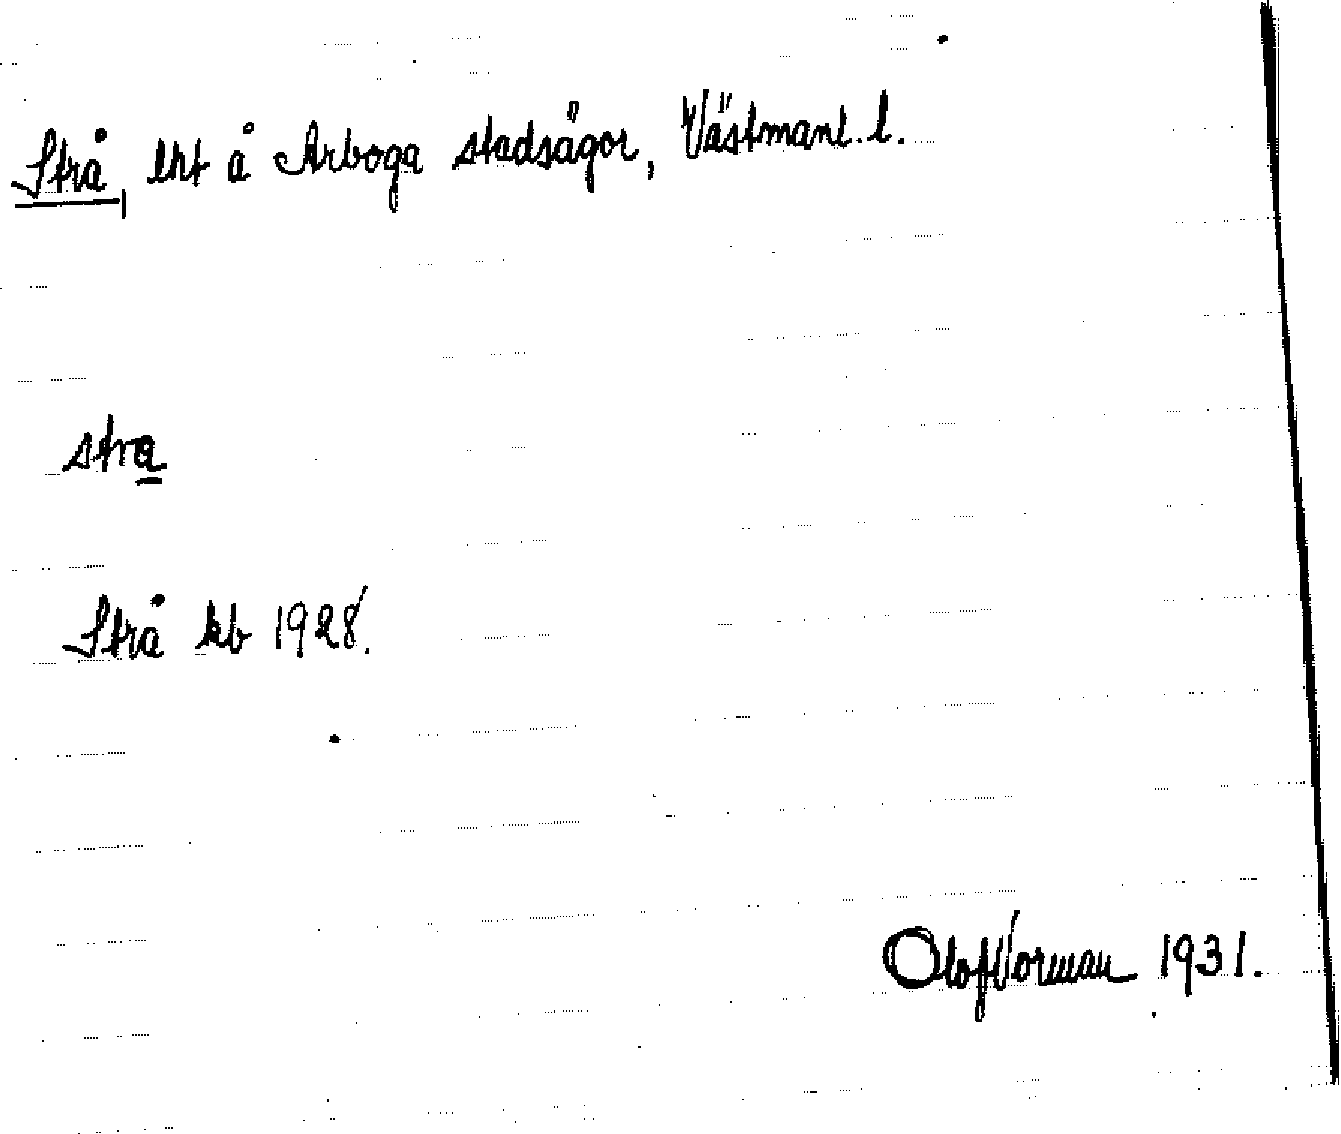 Strå, lht å Arboga stadsägor, Västmanl. l.
stra
Strå kb 1928.
Olof Vorman 1931.